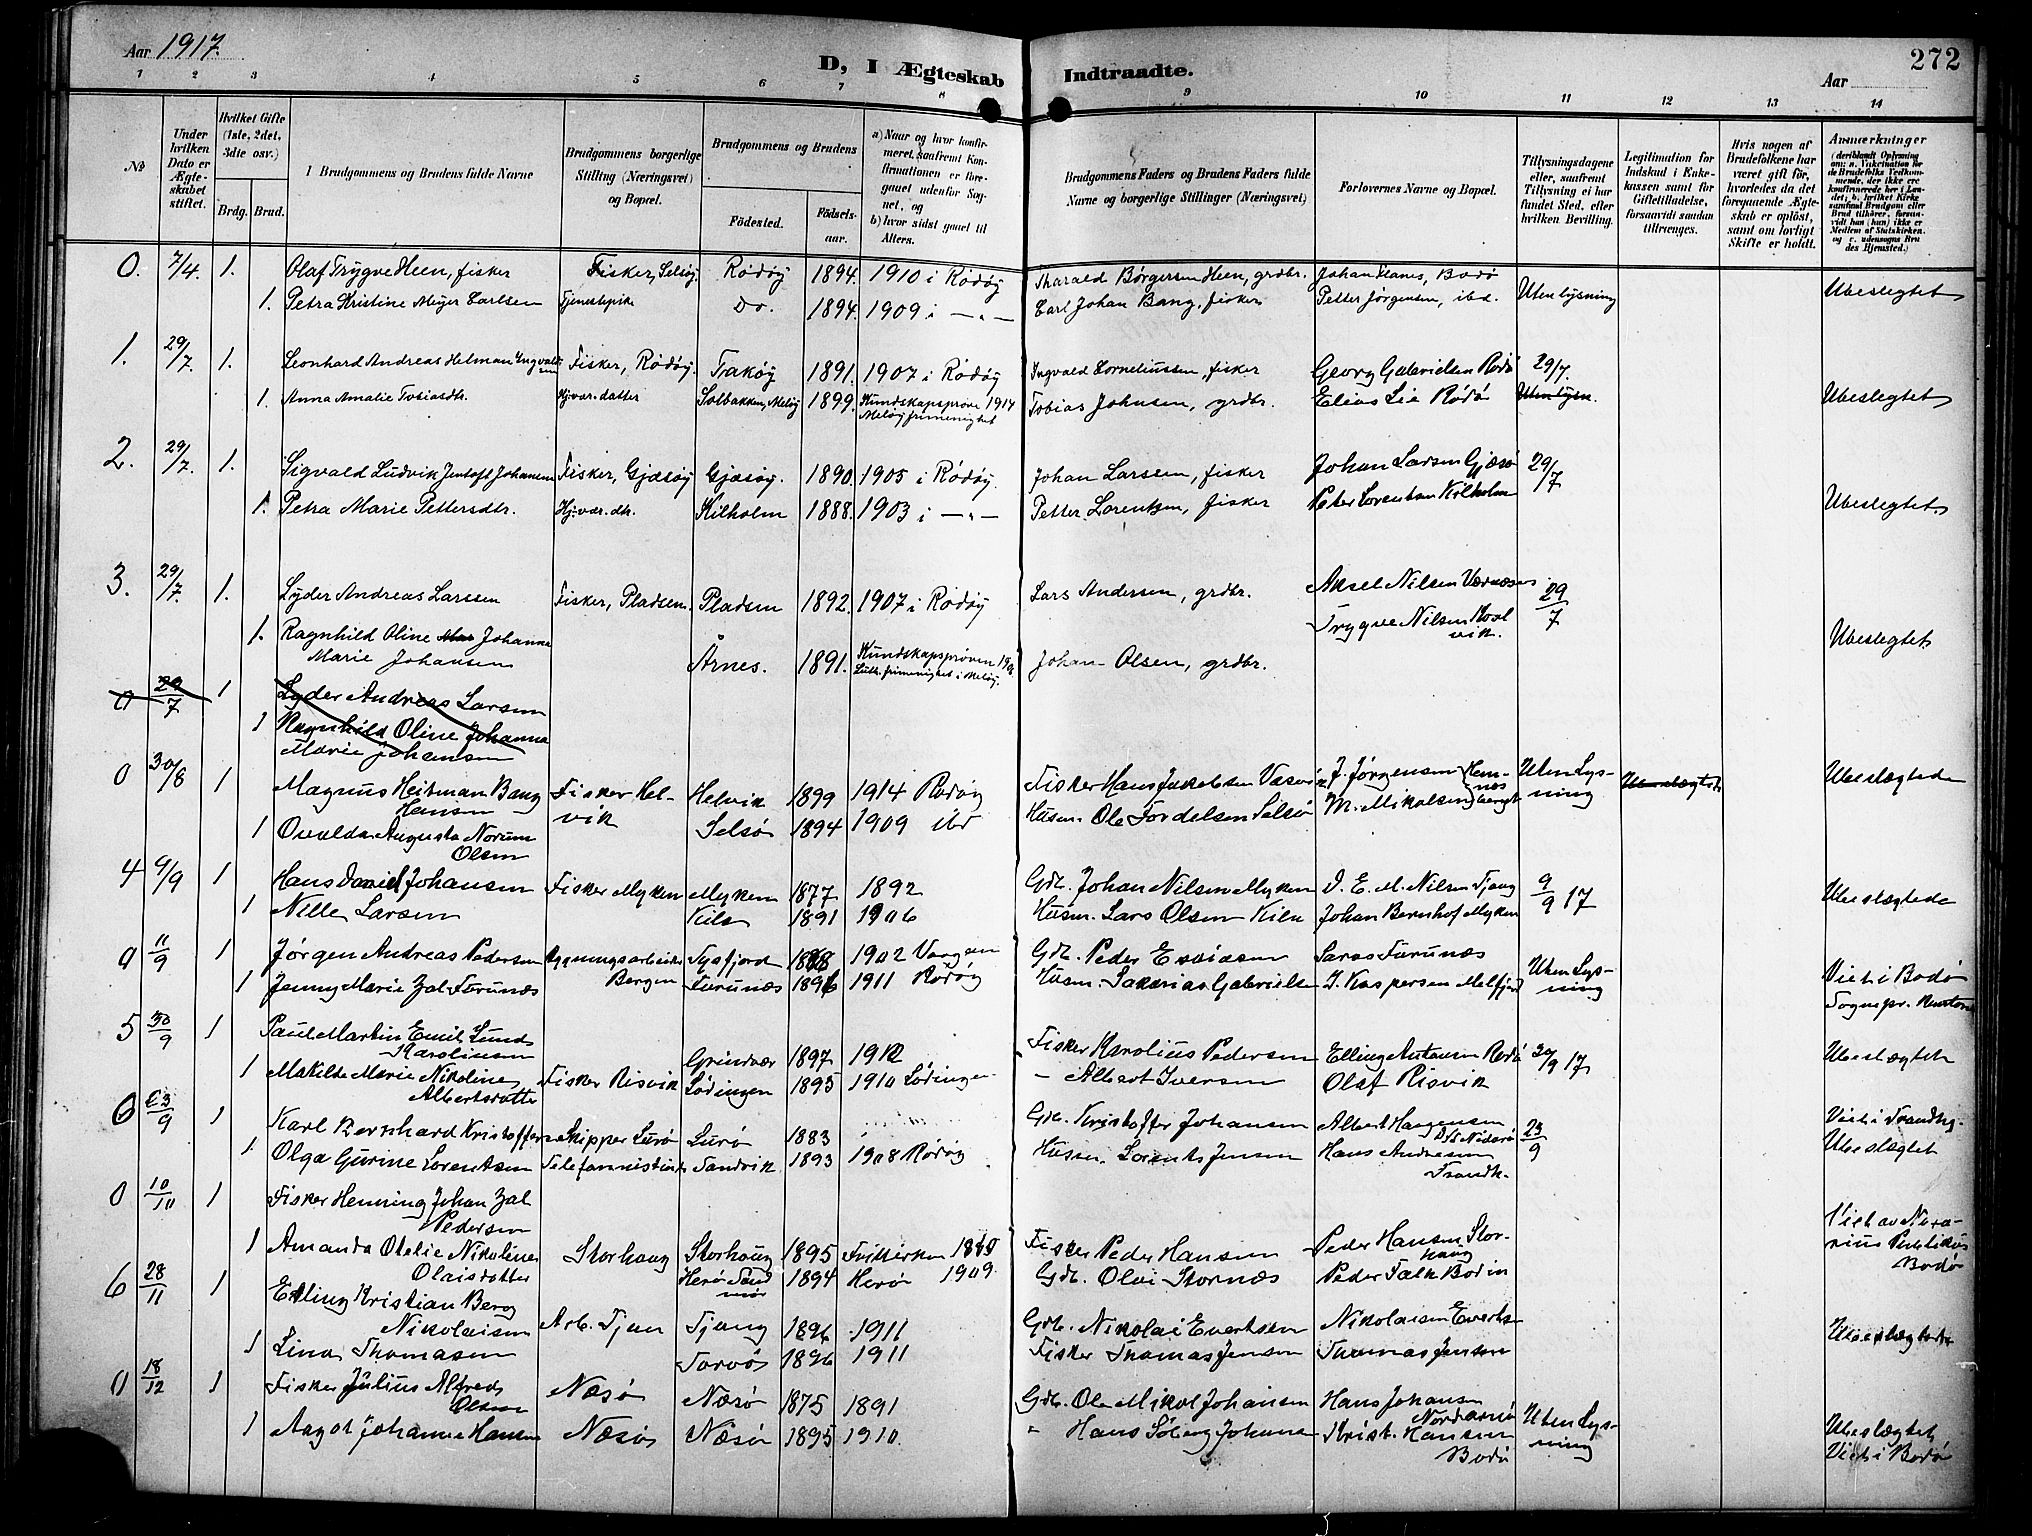 Aar 1917.
D, I Ægteskab Indtraadte.
272
Aar
1 2 3 4 5 6 7 8 9 10 11 12 13 14
№
Under hvilken Dato er Ægteskabet stiftet.
Hvilket Gifte (1ste, 2det, 3die osv.)
Brdg. Brud.
Brudgommens og Brudens fulde Navne
Brudgommens borgerlige Stilling (Næringsvei) og Bopæl.
Brudgommens og Brudens
Födested.
Födselsaar.
a) Naar og hvor konfirmeret, saafremt Konfirmationen er foregaaet udenfor Sognet, og
b) hvor sidst gaaet til Alters.
Brudgommens Faders og Brudens Faders fulde Navne og borgerlige Stillinger (Næringsvei)
Forlovernes Navne og Bopæl.
Tillysningsdagene eller, saafremt Tillysning ei har fundet Sted, efter hvilken Bevilling.
Legitimation for Indskud i Enkekassen samt for Giftetilladelse, forsaavidt saadan tiltrænges.
Hvis nogen af Brudefolkene har været gift för, hvorledes da det foregaaende Ægteskab er oplöst, samt om lovligt Skifte er holdt.
Anmærkninger
0. 7/4. 1. Olaf Trygve Heen, fisker Fisker, Selsöy. Rødøy 1894. 1910 i Rødøy Harald Børgersen Heen, grdbr. Johan Hanes, Bodø
1. Petra Kristine Meyer Carlsen Tjenestepike Do. 1894. 1909 i —"— Carl Johan Bang, fisker Petter Jørgensen, ibd. Uten lysning Ubeslegtet
1. 29/7. 1. Leonhard Andreas Helman Ingvaldsen Fisker, Rødøy. Trakøy 1891. 1907 i Rødøy Ingvald Corneliussen, fisker Georg Gabrielsen Rødø 29/7.
1. Anna Amalie Tobiasdtr. Hjvær. datter Solbakken, Meløy 1899. Kundskapsprøve 1914 Meløy frimenighet Tobias Johnsen, grdbr. Elias Lie Rødø Uten lysn. Ubeslegtet
2. 29/7. 1. Sigvald Ludvik Jentoft Johansen Fisker, Gjæsøy Gjæsøy. 1890. 1905 i Rødøy. Johan Larsen, fisker Johan Larsen Gjæsø 29/7
1. Petra Marie Pettersdtr. Hjvær. dtr. Kilholm 1888. 1903 i —"— Petter Lorentzen, fisker Peter Lorentsen Kilholm Ubeslegtet
3. 29/7. 1. Lyder Andreas Larssen Fisker, Pladsen. Pladsen 1892. 1907 i Rødøy Lars Andersen, grdbr. Aksel Nilsen Værnæs 29/7
1. Ragnhild Oline Mar Johanna Marie Johansen Årnes. 1891. Kundskapsprøven Luth. frimenighet i Meløy. Johan Olsen, grdbr. Trygve Nilsen Ubeslegtet
0 29/7 1 Lyder Andreas Larsen
1 Ragnhild Oline Johanna Marie Johansen
0 30/8 1 Magnus Heitman Bang Hansen Fisker Helvik Helvik 1899 1914 Rødøy Fisker Hans Jakobsen J. Jørgensen Uten Lysning Ubeslægtede
1 Ovalda Augusta Norum Olsen Selsø 1894 1909 ibd Husm. Ole Tordelsen Selsø M. Mikalsen
4 9/9 1 Hans Daniel Johansen Fisker Myken Myken 1877 1892 Gdb. Johan Nilsen Myken I. E. M. Nilsen Tjong 9/9 17
1 Nille Larsen Kila 1891 1906 Husm. Lars Olsen Kila Johan Bernhof Myken Ubeslægtede
0 11/9 1 Jørgen Andreas Pedersen Bygningsarbeider Bergen Tysfjord 1888 1902 Gdb. Peder Esaiasen Lars Furunæs
1 Jenny Marie Zal. Furunæs Furunæs 1896 1911 Rødøy Husm. Sakarias Gabrielsen J. Kaspersen Melfjord Uten Lysning Viet i Bodø
5 30/9 1 Paul Martin Emil Lund Karoliusen Fisker Risvik Grindvær 1897 1912 Fisker Karolius Pedersen Elling Antonsen Rødø 30/9 17
1 Makilde Marie Nikoline Albertsdatter Lødingen 1895 1910 Lødingen " Albert Iversen Olaf Risvik Ubeslægtet
6 23/9 1 Karl Bernhard Kristoffersen Skipper Lurø Lurø 1883 Gdb. Kristoffer Johansen Albert Haagensen 23/9
1. Olga Gurine Lorentsen Telefonistinde Sandvik 1893 1908 Rødøy Husm. Lorents Jensen Hans Andresen Trondh. Viet i Trondhj. Ubeslægtet
0 10/10 1 Fisker Henning Johan Zal Pedersen Storhaug Storhaug 1895 Fisker Peder Hansen Peder Hansen Storhaug
1 Amanda Otelie Nikoline Olaisdatter Herø 1894 Herø 1909. Gdb. Olai Stornæs Peder Falk Bodin Viet av Notarius Publikus Bodø
6 28/11 1 Elling Kristian Berg Nikolaisen Arb. Tjong Tjong 1896 1911 Gdb. Nikolai Evertsen Nikolaisen Evertsen
1 Lina Thomasen Sorvø 1896 1911 Fisker Thomas Jensen Thomas Jensen
0 18/12 1 Fisker Julius Alfred Olsen Næsø Næsø 1875 1891 Gdb. Ole Mikal Johansen Hans Johansen Nordarnø
1 Aagot Johanne Hansen Næsø Næsø 1895 1910. " Hans Søberg Johansen Krist. Hansen Bodø Uten Lysning Ubeslægtet Viet i Bodø